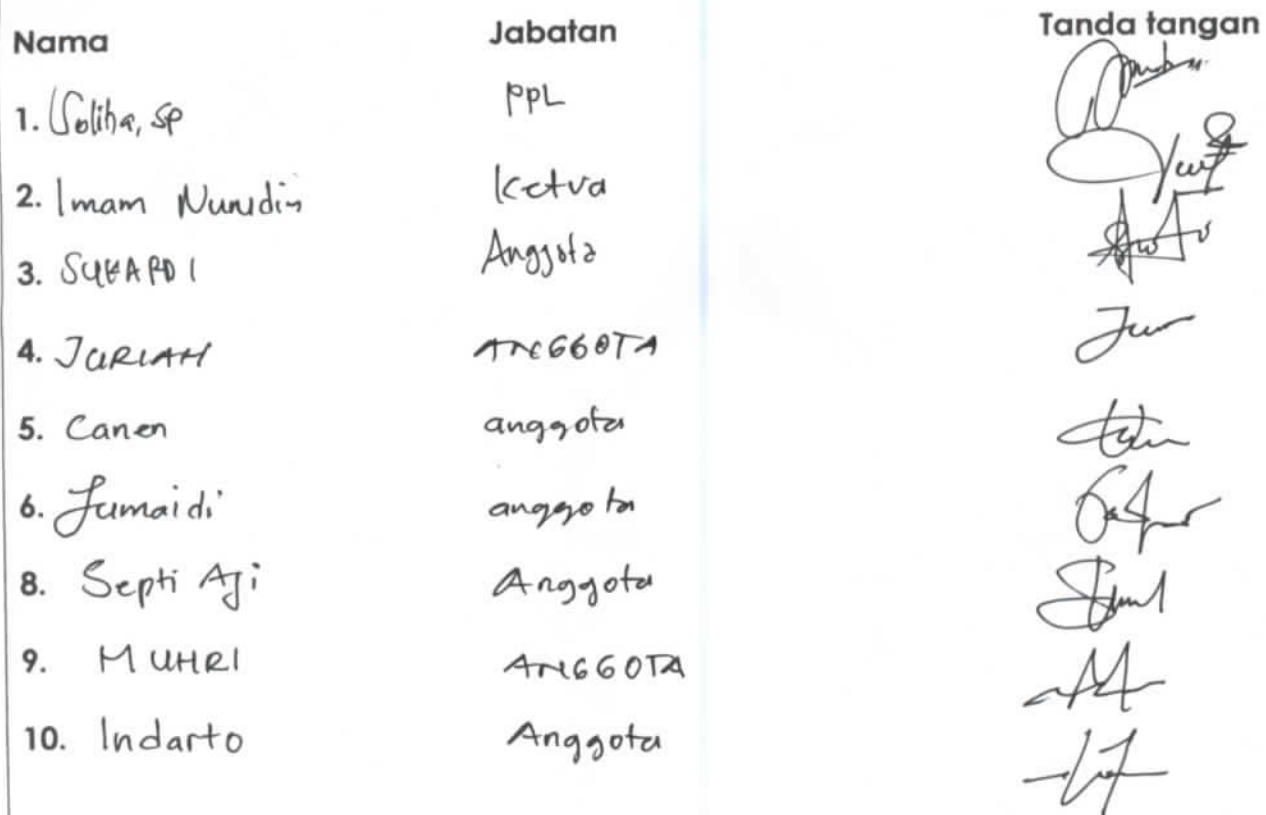 Nama Jabatan Tanda tangan
1. Soliha, SP PPL
2. Imam Nurudin Ketua
3. SUKARDI Anggota
4. JURIAH ANGGOTA
5. Canen anggota
6. Jumaidi anggota
8. Septi Aji Anggota
9. MUHRI ANGGOTA
10. Indarto Anggota